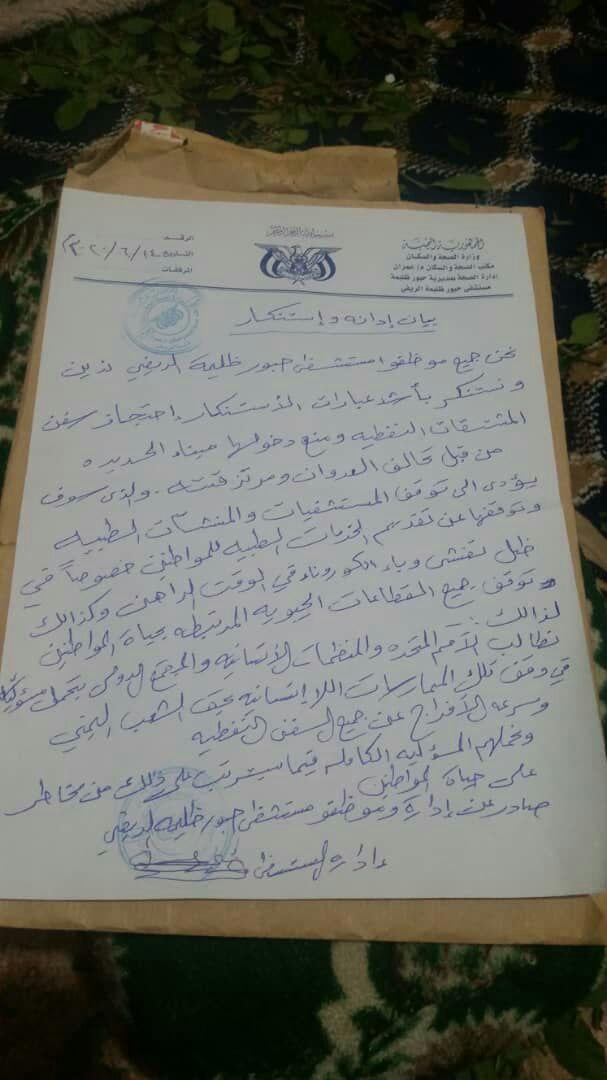 الجمهورية اليمنية
وزارة الصحة والسكان
مكتب الصحة والسكان م/ عمران
إدارة الصحة بمديرية حبور ظليمة
مستشفى حبور ظليمة الريفي
بسم الله الرحمن الرحيم
الرقم
التاريخ ١٤/٦/٢٠٢٠م
المرفقات
بيان إدانه و إستنكار
نحن جميع موظفوا مستشفى حبور ظليمه الريفي ندين
ونستنكر بأشد عبارات الأستنكار إحتجاز سفن
المشتقات النفطيه ومنع دخولها ميناء الحديده
من قبل تحالف العدوان ومرتزقته . والذي سوف
يؤدي الى توقف المستشفيات والمنشئات الطبيه
وتوقفها عن تقديم الخدمات الطبيه للمواطنين خصوصاً في
ظل تفشي وباء الكورونا في الوقت الراهن وكذالك
توقف جميع القطاعات الحيويه المرتبطه بحياة المواطنين
لذالك :
نطالب الأمم المتحده والمنظمات الأنسانيه والمجتمع الدولي بتحمل مسؤليته
في وقف تلك الممارسات اللا إنسانيه بحق الشعب اليمني
وسرعه الأفراج عن جميع السفن النفطيه
ونحملهم المسؤليه الكامله فيما سيترتب على ذلك من مخاطر
على حياة المواطن
صادر عن إدارة وموظفو مستشفى حبور ظليمه الريفي
إدارة المستشفى